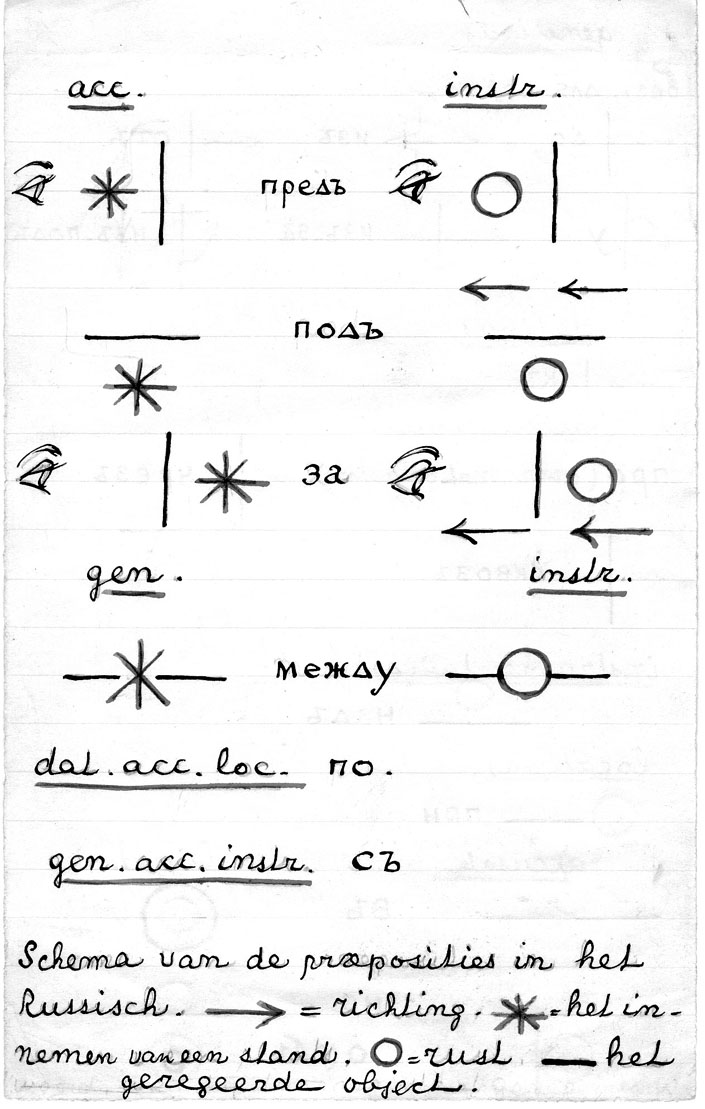 acc. instr.
предъ
подъ
за
gen. instr.
между
dat. acc. loc. по.
gen. acc. instr. съ
Schema van de præposities in het
Russisch. → = richting. = het in-
nemen van een stand. = rust — het
geregeerde object.